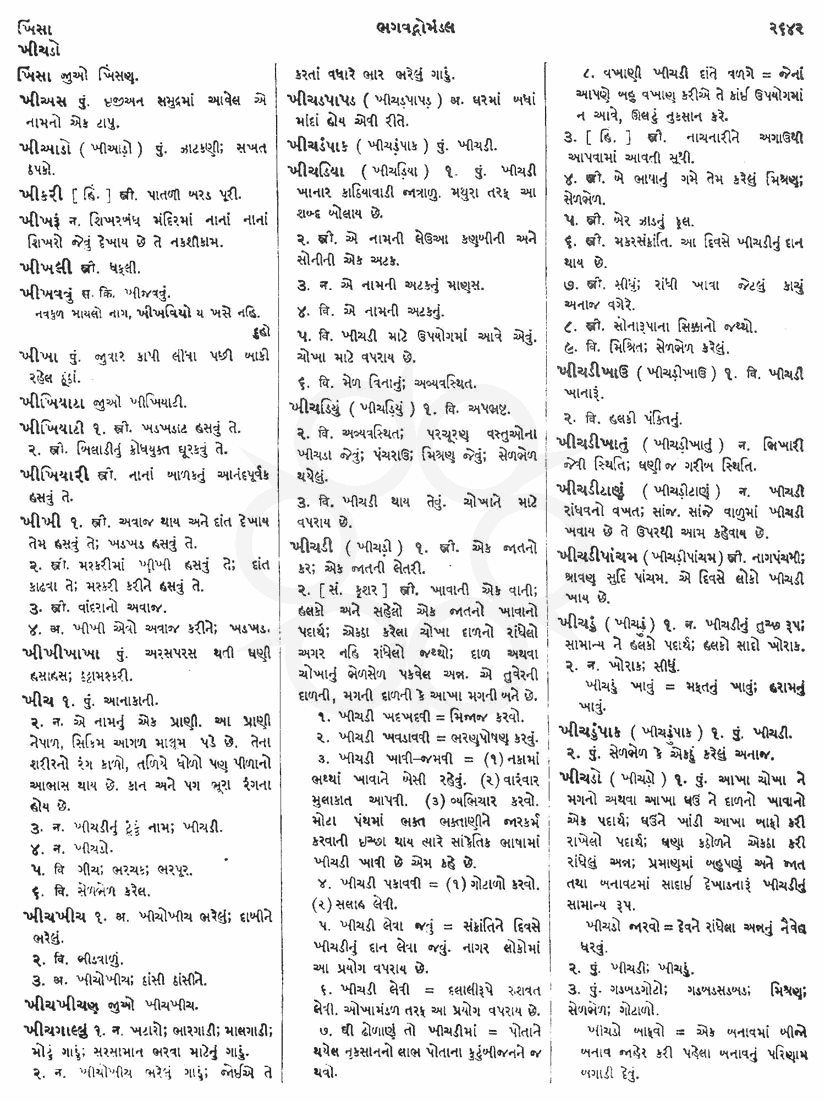 ખિંસા
ખીચડો
ભગવદ્ગોમંડલ
૨૬૪૨
ખિંસા જુઓ ખિંસણ.
ખીઅસ પું. ઇજીઅન સમુદ્રમાં આવેલ એ
નામનો એક ટાપુ.
ખીઆડો ( ખીઆડ઼ો ) પું. ઝાટકણી; સખત
ઠપકો.
ખીકરી [ હિં. ] સ્ત્રી. પાતળી બરડ પૂરી.
ખીખરૂં ન. શિખરબંધ મંદિરમાં નાનાં નાનાં
શિખરો જેવું દેખાય છે તે નકશીકામ.
ખીખલી સ્ત્રી. ધકૂલી.
ખીખવવું સ. ક્રિ. ખીજવવું.
નવકુળ માયલો નાગ, ખીખવિયો ય ખસે નહિ.
દુહો
ખીખા પું. જુવાર કાપી લીધા પછી બાકી
રહેલ ઠૂંઠાં.
ખીખિયાટા જુઓ ખીખિયાટી.
ખીખિયાટી ૧. સ્ત્રી. ખડખડાટ હસવું તે.
૨. સ્ત્રી. બિલાડીનું ક્રોધયુક્ત ઘૂરકવું તે.
ખીખિયારી સ્ત્રી. નાનાં બાળકનું આનંદપૂર્વક
હસવું તે.
ખીખી ૧. સ્ત્રી. અવાજ થાય અને દાંત દેખાય
તેમ હસવું તે; ખડખડ હસવું તે.
૨. સ્ત્રી. મશ્કરીમાં ખીખી હસવું તે; દાંત
કાઢવા તે; મશ્કરી કરીને હસવું તે.
૩. સ્ત્રી. વાંદરાનો અવાજ.
૪. અ. ખીખી એવો અવાજ કરીને; ખડખડ.
ખીખીખાખા પું. અરસપરસ થતી ઘણી
હસાહસ; ઠઠ્ઠામશ્કરી.
ખીચ ૧. પું. આનાકાની.
૨. ન. એ નામનું એક પ્રાણી. આ પ્રાણી
નેપાળ, સિક્કિમ આગળ માલૂમ પડે છે. તેના
શરીરનો રંગ કાળો, તળિયે ધોળો પણ પીળાનો
આભાસ થાય છે. કાન અને પગ ભૂરા રંગના
હોય છે.
૩. ન. ખીચડીનું ટૂંકું નામ; ખીચડી.
૪. ન. ખીચડો.
૫. વિ ગીચ; ભરચક; ભરપૂર.
૬. વિ. સેળભેળ કરેલ.
ખીચખીચ ૧. અ. ખીચોખીચ ભરેલું; દાબીને
ભરેલું.
૨. વિ. ભીડવાળું.
૩. અ. ખીચોખીચ; ઠાંસી ઠાંસીને.
ખીચખીચણ જુઓ ખીચખીચ.
ખીચગાલ્લું ૧. ન. ખટારો; ભારગાડી; માલગાડી;
મોટું ગાડું; સરસામાન ભરવા માટેનું ગાડું.
૨. ન. ખીચોખીચ ભરેલું ગાડું; જોઈએ તે
કરતાં વધારે ભાર ભરેલું ગાડું.
ખીચડપાપડ ( ખીચડ઼પાપડ઼ ) અ. ઘરમાં બધાં
માંદાં હોય એવી રીતે.
ખીચડંપાક ( ખીચડ઼ંપાક ) પું. ખીચડી.
ખીચડિયા ( ખીચડ઼િયા ) ૧. પું. ખીચડી
ખાનાર કાઠિયાવાડી જાત્રાળુ. મથુરા તરફ આ
શબ્દ બોલાય છે.
૨. સ્ત્રી. એ નામની લેઉઆ કણબીની અને
સોનીની એક અટક.
૩. ન. એ નામની અટકનું માણસ.
૪. વિ. એ નામની અટકનું.
૫. વિ. ખીચડી માટે ઉપયોગમાં આવે એવું.
ચોખા માટે વપરાય છે.
૬. વિ. મેળ વિનાનું; અવ્યવસ્થિત.
ખીચડિયું ( ખીચડ઼િયું ) ૧. વિ. અપભ્રષ્ટ.
૨. વિ. અવ્યવસ્થિત; પરચૂરણ વસ્તુઓના
ખીચડા જેવું; પંચરાઉ; મિશ્રણ જેવું; સેળભેળ
થયેલું.
૩. વિ. ખીચડી થાય તેવું. ચોખાને માટે
વપરાય છે.
ખીચડી ( ખીચડ઼ી ) ૧. સ્ત્રી. એક જાતનો
કર; એક જાતની લેતરી.
૨. [ સં. કૃશર ] સ્ત્રી. ખાવાની એક વાની;
હલકો અને સહેલો એક જાતનો ખાવાનો
પદાર્થ; એકઠા કરેલા ચોખા દાળનો રાંધેલો
અગર નહિ રાંધેલો જથ્થો; દાળ અથવા
ચોખાનું ભેળસેળ પકવેલ અન્ન. એ તુવેરની
દાળની, મગની દાળની કે આખા મગની બને છે.
૧. ખીચડી ખદખદવી = મિજાજ કરવો.
૨. ખીચડી ખવડાવવી = ભરણપોષણ કરવું.
૩. ખીચડી ખાવી-જમવી = (૧) નકામાં
ભથ્થાં ખાવાને બેસી રહેવું. (૨) વારંવાર
મુલાકાત આપવી. (૩) વ્યભિચાર કરવો.
મોટા પંથમાં ભક્ત ભક્તાણીને જારકર્મ
કરવાની ઇચ્છા થાય ત્યારે સાંકેતિક ભાષામાં
ખીચડી ખાવી છે એમ કહે છે.
૪. ખીચડી પકાવવી = (૧) ગોટાળો કરવો.
(૨) સલાહ લેવી.
૫. ખીચડી લેવા જવું = સંક્રાંતિને દિવસે
ખીચડીનું દાન લેવા જવું. નાગર લોકોમાં
આ પ્રયોગ વપરાય છે.
૬. ખીચડી લેવી = દલાલીરૂપે રુશવત
લેવી. ઓખામંડળ તરફ આ પ્રયોગ વપરાય છે.
૭. ઘી ઢોળાણું તો ખીચડીમાં = પોતાને
થયેલ નુકસાનનો લાભ પોતાના કુટુંબીજનને જ
થવો.
૮. વખાણી ખીચડી દાંતે વળગે = જેનાં
આપણે બહુ વખાણ કરીએ તે કાંઈ ઉપયોગમાં
ન આવે, ઊલટું નુકસાન કરે.
૩. [ હિં. ] સ્ત્રી. નાચનારીને અગાઉથી
આપવામાં આવતી સૂથી.
૪. સ્ત્રી. બે ભાષાનું ગમે તેમ કરેલું મિશ્રણ;
સેળભેળ.
૫. સ્ત્રી. બેર ઝાડનું ફૂલ.
૬. સ્ત્રી. મકરસંક્રાંતિ. આ દિવસે ખીચડીનું દાન
થાય છે.
૭. સ્ત્રી. સીધું; રાંધી ખાવા જેટલું કાચું
અનાજ વગેરે.
૮. સ્ત્રી. સોનારૂપાના સિક્કાનો જથ્થો.
૯. વિ. મિશ્રિત; સેળભેળ કરેલું.
ખીચડીખાઉ ( ખીચડ઼ીખાઉ ) ૧. વિ. ખીચડી
ખાનારૂં.
૨. વિ. હલકી પંક્તિનું.
ખીચડીખાતું ( ખીચડ઼ીખાતું ) ન. ભિખારી
જેવી સ્થિતિ; ઘણી જ ગરીબ સ્થિતિ.
ખીચડીટાણું ( ખીચડ઼ીટાણું ) ન. ખીચડી
રાંધવનો વખત; સાંજ. સાંજે વાળુમાં ખીચડી
ખવાય છે તે ઉપરથી આમ કહેવાય છે.
ખીચડીપાંચમ (ખીચડ઼ીપાંચમ) સ્ત્રી. નાગપંચમી;
શ્રાવણ સુદિ પાંચમ. એ દિવસે લોકો ખીચડી
ખાય છે.
ખીચડું ( ખીચડ઼ું ) ૧. ન. ખીચડીનું તુચ્છ રૂપ;
સામાન્ય ને હલકો પદાર્થ; હલકો સાદો ખોરાક.
૨. ન. ખોરાક; સીધું.
ખીચડું ખાવું = મફતનું ખાવું; હરામનું
ખાવું.
ખીચડુંપાક ( ખીચડ઼ુંપાક ) ૧. પું. ખીચડી.
૨. પું. સેળભેળ કે એકઠું કરેલું અનાજ.
ખીચડો ( ખીચડ઼ો ) ૧. પું. આખા ચોખા ને
મગનો અથવા આખા ઘઉં ને દાળનો ખાવાનો
એક પદાર્થ; ઘઉંને ખાંડી આખા બાફી કરી
રાખેલો પદાર્થ; ઘણા કઠોળને એકઠા કરી
રાંધેલું અન્ન; પ્રમાણમાં બહુપણું અને જાત
તથા બનાવટમાં સાદાઈ દેખાડનારૂં ખીચડીનું
સામાન્ય રૂપ.
ખીચડો જારવો = દેવને રાંધેલા અન્નનું નૈવેદ્ય
ધરવું.
૨. પું. ખીચડી; ખીચડું.
૩. પું. ગડબડગોટો; ગડબડસડબડ; મિશ્રણ;
સેળભેળ; ગોટાળો.
ખીચડો બાફવો = એક બનાવમાં બીજો
બનાવ જાહેર કરી પહેલા બનાવનું પરિણામ
બગાડી દેવું.